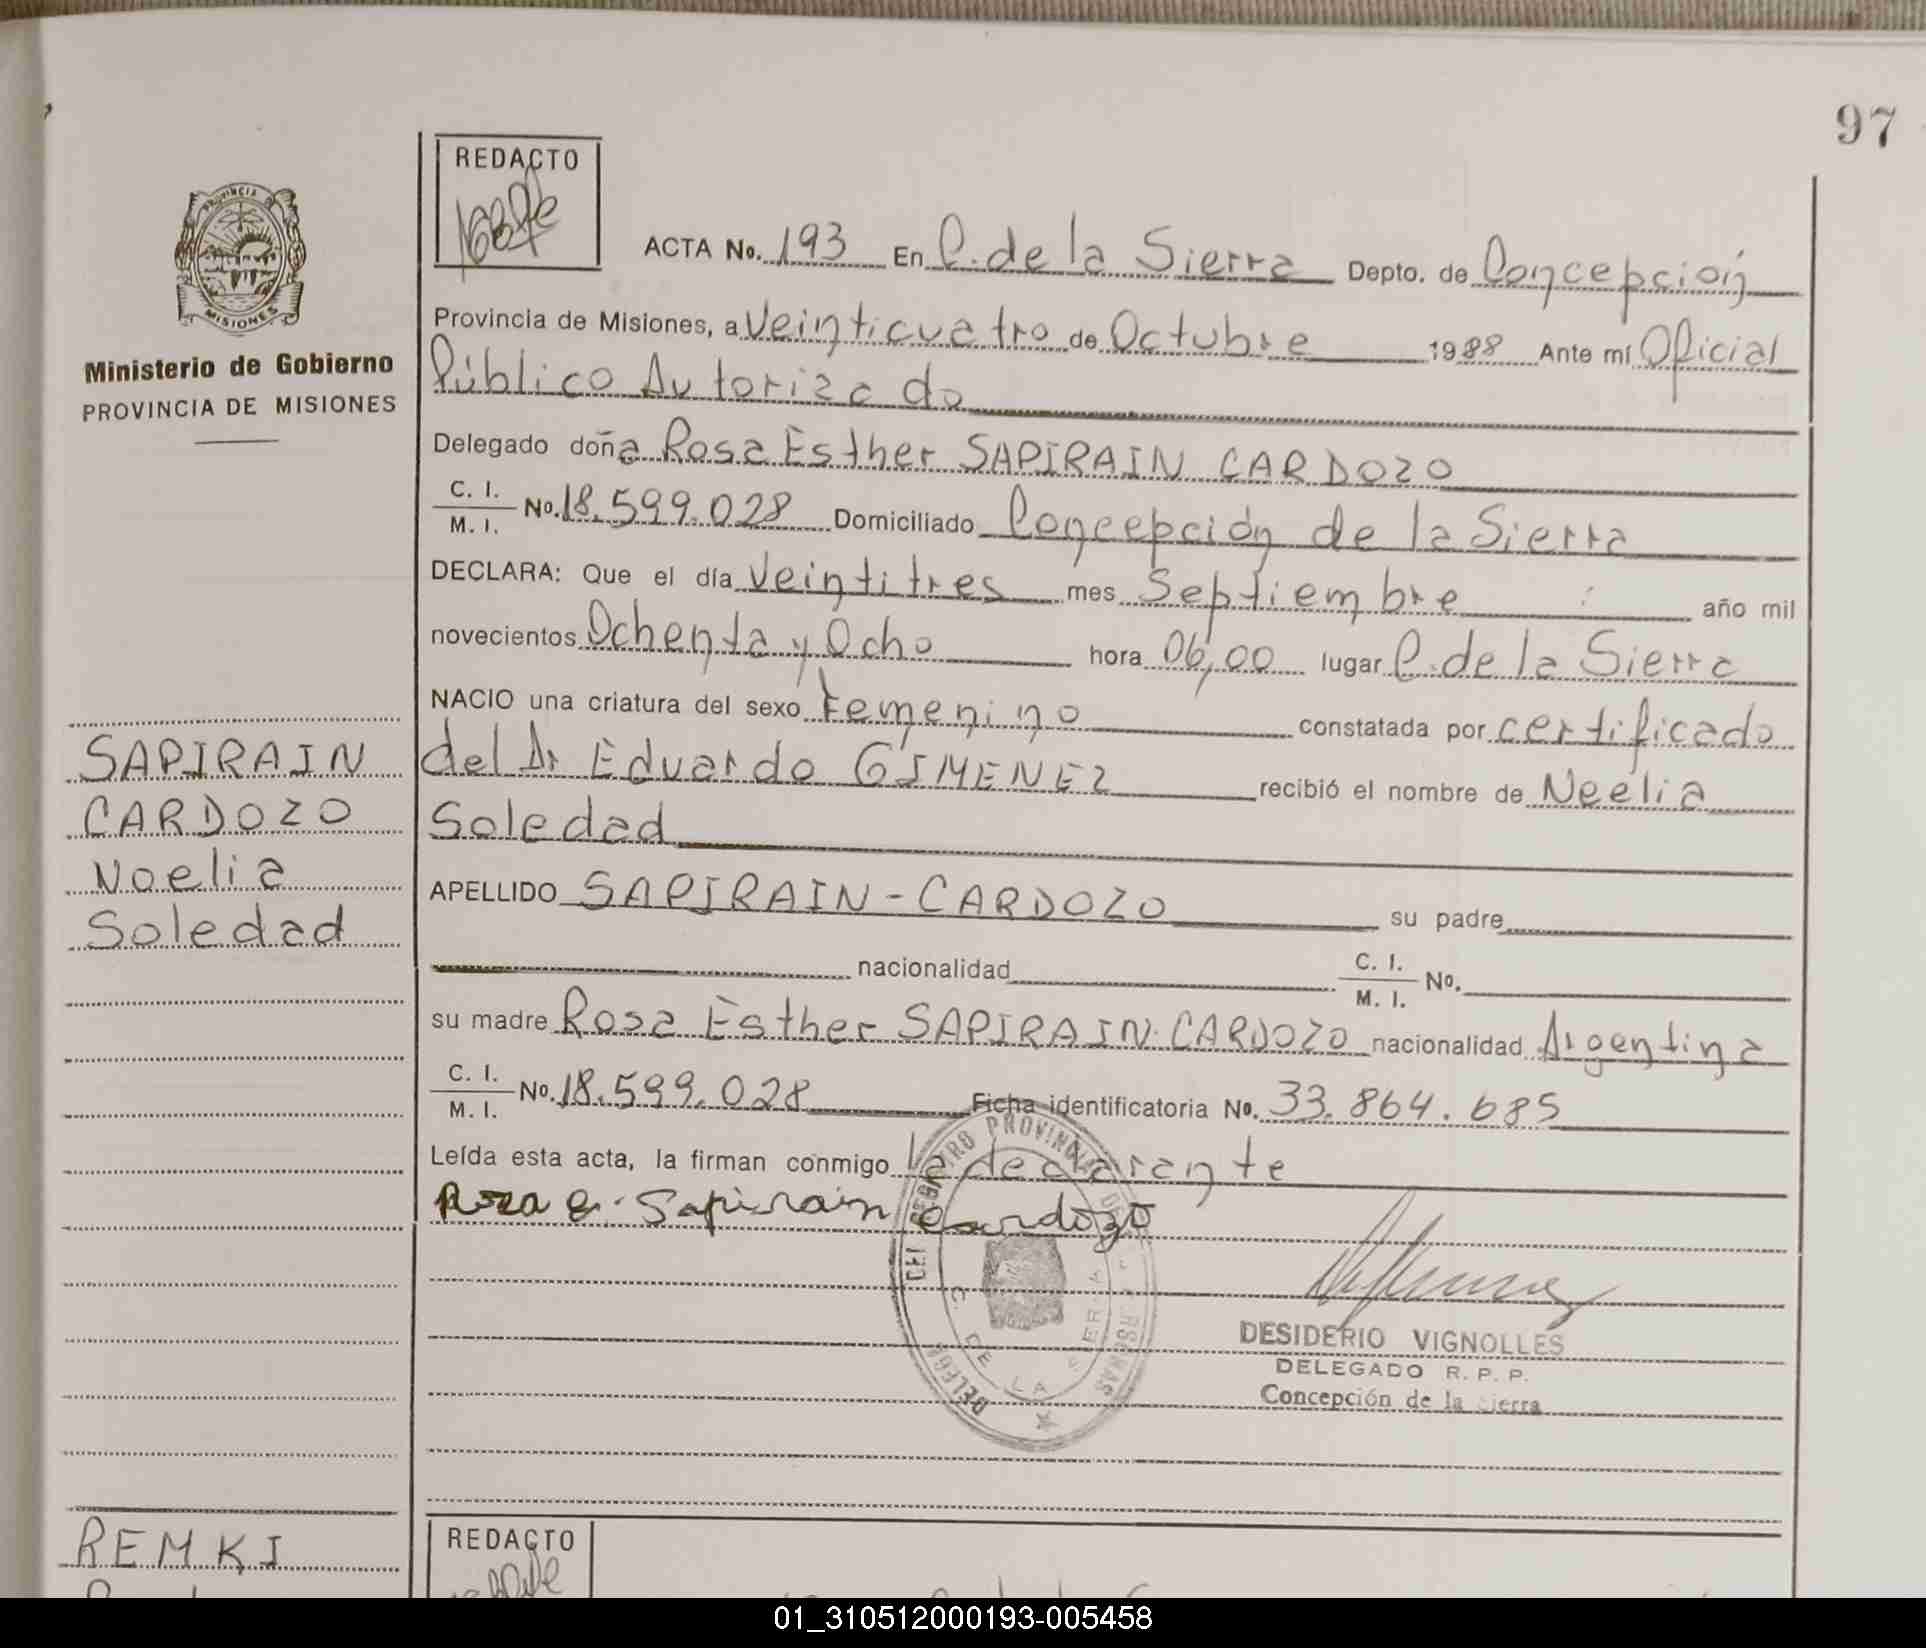 97
PROVINCIA
MISIONES
Ministerio de Gobierno
PROVINCIA DE MISIONES
SAPIRAIN
CARDOZO
Noelia
Soledad
REDACTO
ACTA No. 193 En C. de la Sierra Depto. de Concepción
Provincia de Misiones, a Veinticuatro de Octubre 1988 Ante mí Oficial
Público Autorizado
Delegado doña Rosa Esther SAPIRAIN CARDOZO
C. I.
M. I. No. 18.599.028 Domiciliado Concepción de la Sierra
DECLARA: Que el día Veintitres mes Septiembre año mil
novecientos Ochenta y Ocho hora 06,00 lugar C. de la Sierra
NACIO una criatura del sexo Femenino constatada por certificado
del Dr Eduardo GIMENEZ recibió el nombre de Neelia
Soledad
APELLIDO SAPIRAIN-CARDOZO su padre
nacionalidad C. I.
M. I. No.
su madre Rosa Esther SAPIRAIN-CARDOZO nacionalidad Argentina
C. I.
M. I. No. 18.599.028 Ficha identificatoria No. 33.864.685
Leída esta acta, la firman conmigo la declarante
Rosa E. Sapirain Cardozo
C. DE LA SIERRA
DESIDERIO VIGNOLLES
DELEGADO R. P. P.
Concepción de la Sierra
REMKI
REDACTO
01_310512000193-005458